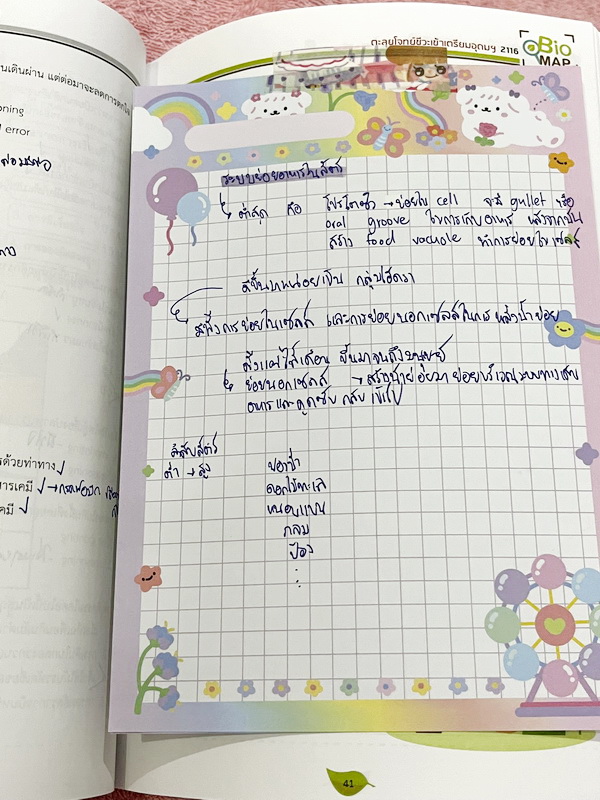 ตะลุยโจทย์ชีวะเข้าเตรียมอุดมฯ 2116
Bio
MAP
นเดินผ่าน แต่ต่อมาจะลดการตก
oning
error
ระบบย่อยอาหารในสัตว์
ต่ำสุด คือ โปรโตซัว → ย่อยใน cell จะมี gullet หรือ
oral groove ในการกินอาหาร หลังจากนั้น
สร้าง food vacuole ทำการย่อยในเซลล์
ดีขึ้นมาหน่อยเป็น กลุ่มไฮดรา
มีทั้งการย่อยในเซลล์ และการย่อยนอกเซลล์ในการหลั่งน้ำย่อย
ตั้งแต่ไส้เดือน ขึ้นมาจนถึงมนุษย์
ย่อยนอกเซลล์ → สร้างน้ำย่อยมาย่อยบริเวณระบบทางเดิน
อาหารและดูดซึมกลับเข้าไป
ลำดับสัตว์
ต่ำ → สูง
ฟองน้ำ
ดอกไม้ทะเล
หนอนแบน
กลม
ปล้อง
:
:
รด้วยท่าทาง
ารเคมี
คมี
41